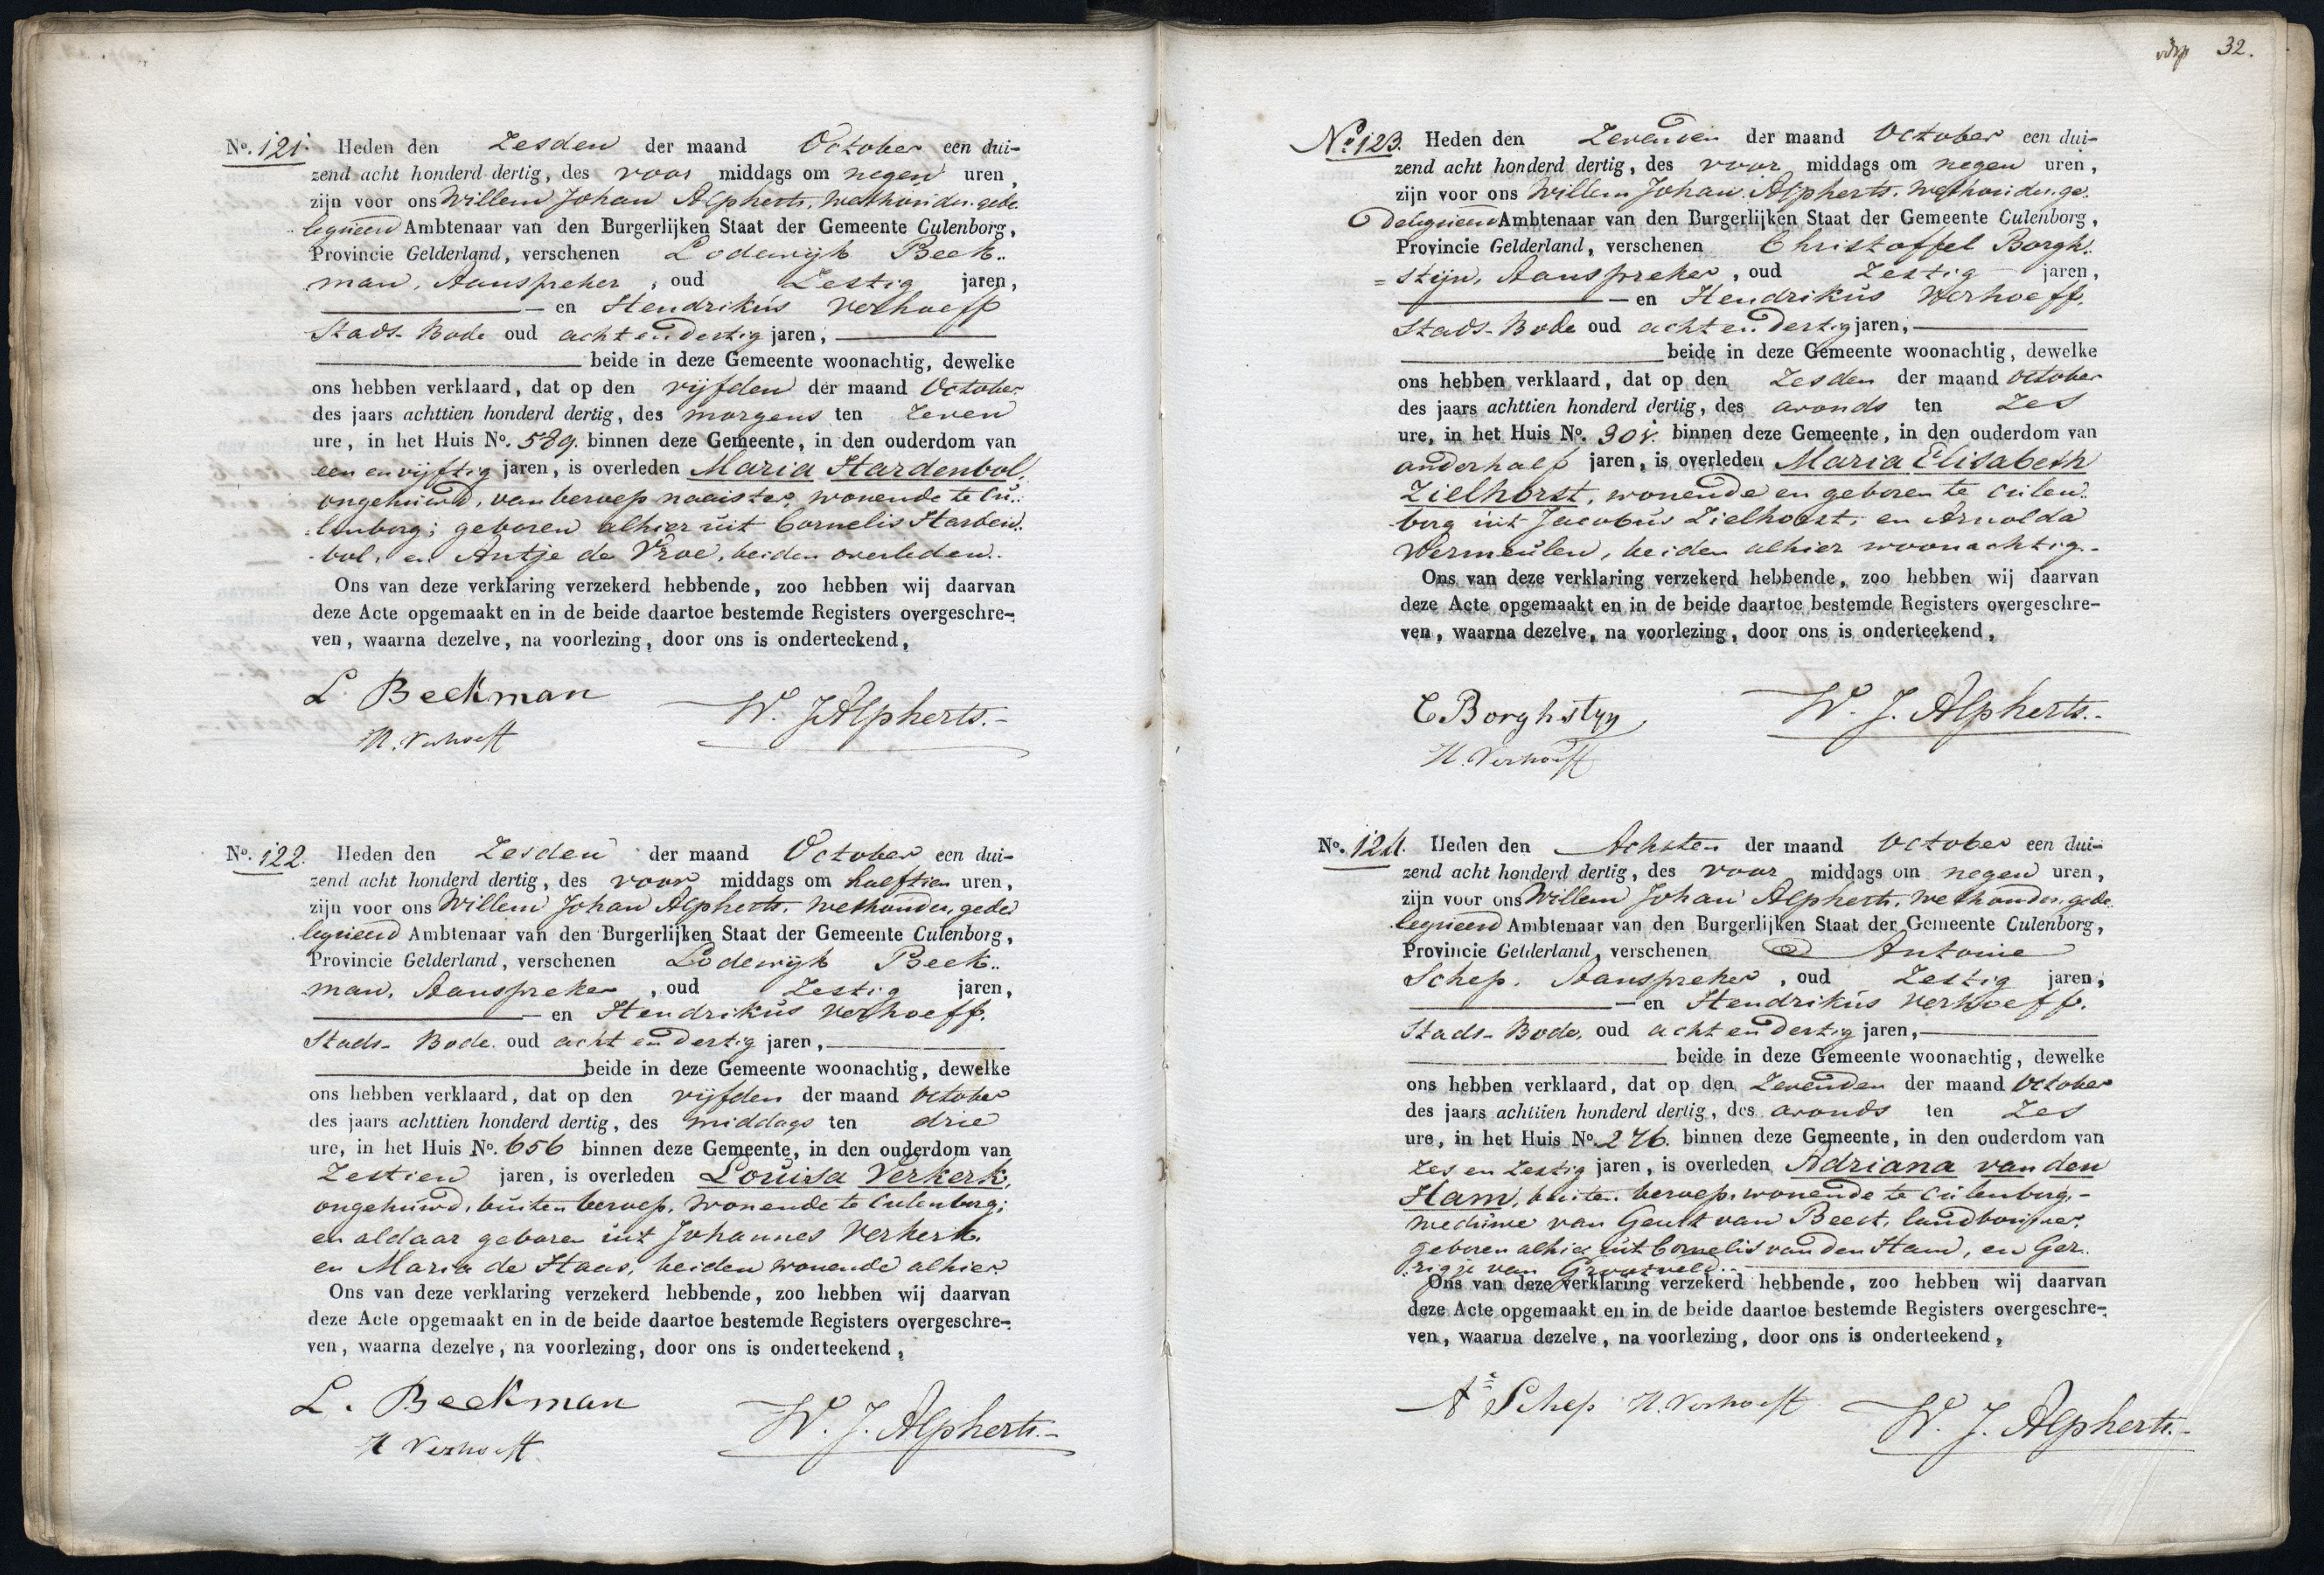 No. 121. Heden den Zesden der maand October een dui-
zend acht honderd dertig, des voor middags om negen uren,
zijn voor ons Willem Johan Alpherts, Wethouder, gede
legueerd Ambtenaar van den Burgerlijken Staat der Gemeente Culenborg,
Provincie Gelderland, verschenen Lodewijk Beek..
man, Aanspreker, oud Zestig jaren,
en Hendrikus Verhoeff
Stads-Bode oud acht en dertig jaren,
beide in deze Gemeente woonachtig, dewelke
ons hebben verklaard, dat op den vijfden der maand October
des jaars achttien honderd dertig, des morgens ten zeven
ure, in het Huis No. 589. binnen deze Gemeente, in den ouderdom van
een en vijftig jaren, is overleden Maria Hardenbol,
ongehuwd, van beroep naaister, wonende te Cu..
lenborg; geboren alhier uit Cornelis Harden..
bol, en Antje de Vroe, beiden overleden.
Ons van deze verklaring verzekerd hebbende, zoo hebben wij daarvan
deze Acte opgemaakt en in de beide daartoe bestemde Registers overgeschre-
ven, waarna dezelve, na voorlezing, door ons is onderteekend,
L. Beekman W. J. Alpherts.-
H. Verhoeff
No. 122. Heden den Zesden der maand October een dui-
zend acht honderd dertig, des voor middags om half tien uren,
zijn voor ons Willem Johan Alpherts, Wethouder, gede
legueerd Ambtenaar van den Burgerlijken Staat der Gemeente Culenborg,
Provincie Gelderland, verschenen Lodewijk Beek..
man, Aanspreker, oud Zestig jaren,
en Hendrikus Verhoeff.
Stads-Bode oud acht en dertig jaren,
beide in deze Gemeente woonachtig, dewelke
ons hebben verklaard, dat op den vijfden der maand October
des jaars achttien honderd dertig, des middags ten drie
ure, in het Huis No. 656 binnen deze Gemeente, in den ouderdom van
Zestien jaren, is overleden Louisa Verkerk,
ongehuwd, buiten beroep, wonende te Culenborg;
en aldaar geboren uit Johannes Verkerk,
en Maria de Haas, beiden wonende alhier.
Ons van deze verklaring verzekerd hebbende, zoo hebben wij daarvan
deze Acte opgemaakt en in de beide daartoe bestemde Registers overgeschre-
ven, waarna dezelve, na voorlezing, door ons is onderteekend,
L. Beekman W. J. Alpherts.-
H Verhoeff
32.
No. 123. Heden den Zevenden der maand October een dui-
zend acht honderd dertig, des voor middags om negen uren,
zijn voor ons Willem Johan Alpherts, Wethouder, ge..
delegueerd Ambtenaar van den Burgerlijken Staat der Gemeente Culenborg,
Provincie Gelderland, verschenen Christoffel Borgh..
=stijn, Aanspreker, oud Zestig jaren,
en Hendrikus Verhoeff.
Stads-Bode oud acht en dertig jaren,
beide in deze Gemeente woonachtig, dewelke
ons hebben verklaard, dat op den Zesden der maand October
des jaars achttien honderd dertig, des avonds ten Zes
ure, in het Huis No. 301. binnen deze Gemeente, in den ouderdom van
anderhalf jaren, is overleden Maria Elisabeth
Zielhorst, wonende en geboren te Culen..
borg uit Jacobus Zielhorst, en Arnolda
Vermeulen, beiden alhier woonachtig.-
Ons van deze verklaring verzekerd hebbende, zoo hebben wij daarvan
deze Acte opgemaakt en in de beide daartoe bestemde Registers overgeschre-
ven, waarna dezelve, na voorlezing, door ons is onderteekend,
C Borghstyn W. J. Alpherts.-
H. Verhoeff
No. 124. Heden den Achsten der maand October een dui-
zend acht honderd dertig, des voor middags om negen uren,
zijn voor ons Willem Johan Alpherts, Wethouder, gede
legueerd Ambtenaar van den Burgerlijken Staat der Gemeente Culenborg,
Provincie Gelderland, verschenen Antonie
Schep, Aanspreker, oud Zestig jaren,
en Hendrikus Verhoeff.
Stads-Bode, oud acht en dertig jaren,
beide in deze Gemeente woonachtig, dewelke
ons hebben verklaard, dat op den Zevenden der maand October
des jaars achttien honderd dertig, des avonds ten Zes
ure, in het Huis No. 276. binnen deze Gemeente, in den ouderdom van
Zes en Zestig jaren, is overleden Adriana van den
Ham, buiten beroep, wonende te Culenborg,-
weduwe van Geurt van Beest, landbouwer.
geboren alhier uit Cornelis van den Ham, en Ger..
rigje van Grootveld..
Ons van deze verklaring verzekerd hebbende, zoo hebben wij daarvan
deze Acte opgemaakt en in de beide daartoe bestemde Registers overgeschre-
ven, waarna dezelve, na voorlezing, door ons is onderteekend,
An Schep H. Verhoeff W. J. Alpherts.-